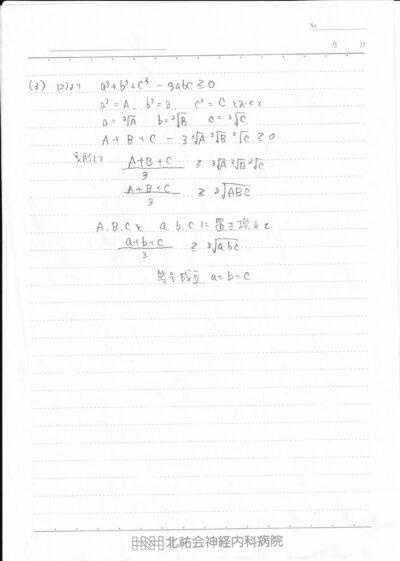 No.
月 日
(3) (2)より a³+b³+c³ - 3abc ≥ 0
a³ = A, b³ = B, c³ = C とおくと
a = ³√A b = ³√B c = ³√C
A + B + C - 3 ³√A ³√B ³√C ≥ 0
変形して (A+B+C)/3 ≥ ³√A ³√B ³√C
(A+B+C)/3 ≥ ³√ABC
A, B, C を a, b, c に置き換えて
(a+b+c)/3 ≥ ³√abc
等号成立 a = b = c
北祐会神経内科病院